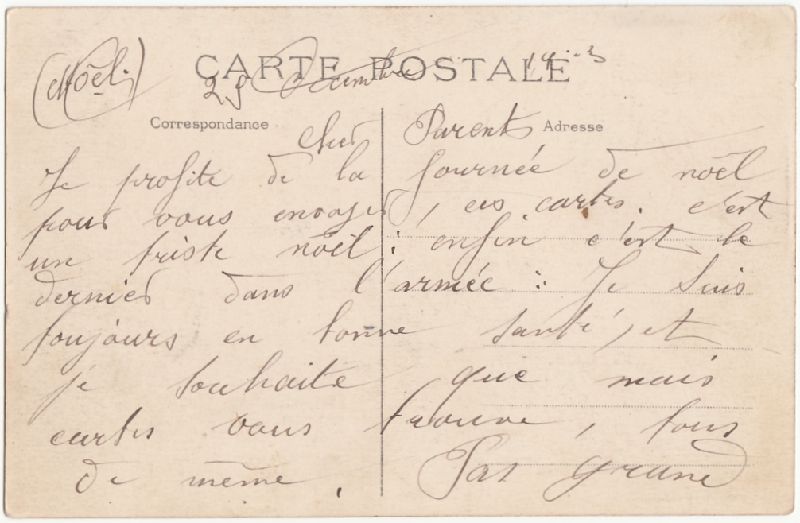 (Noël.)
CARTE POSTALE
25 Décembre
Correspondance
Adresse
Cher Parents
Je profite de la journée de noël
pour vous envoyer, ces cartes. c'est
un triste noël: enfin c'est le
dernier dans l'armée: Je suis
toujours en bonne santé, et
je souhaite que mais
cartes vous trouve, tous
de même. Pas grand